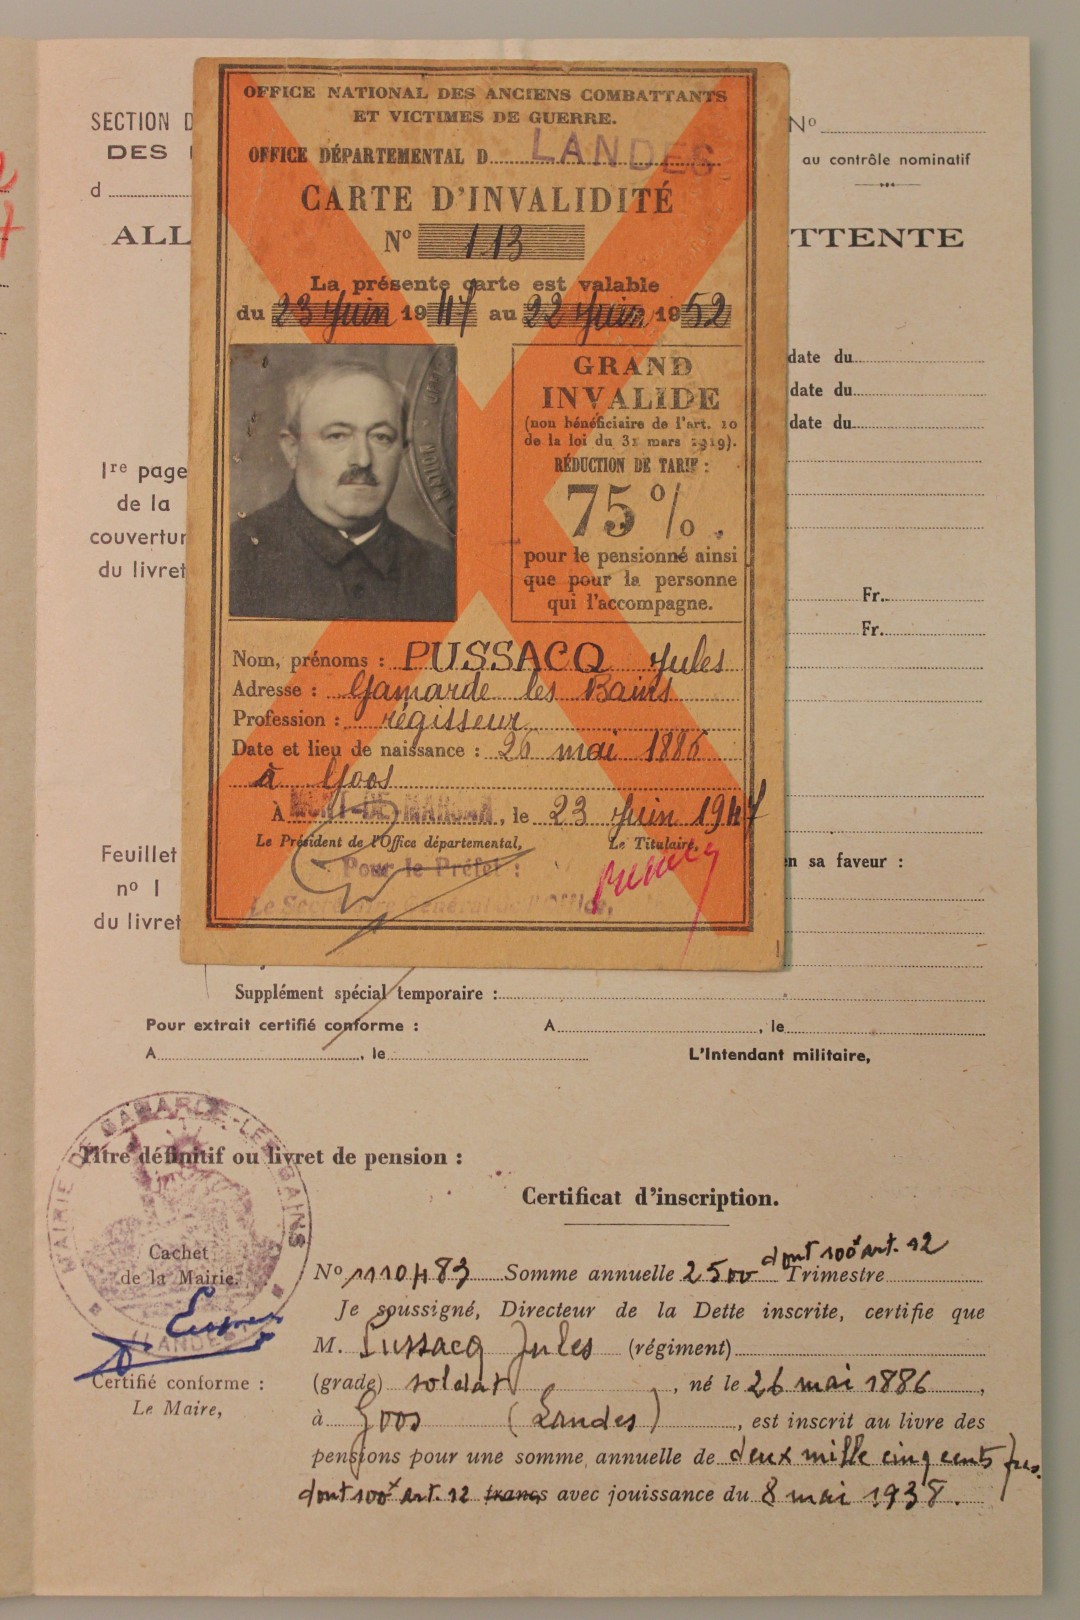 OFFICE NATIONAL DES ANCIENS COMBATTANTS
ET VICTIMES DE GUERRE.
OFFICE DÉPARTEMENTAL D LANDES
CARTE D'INVALIDITÉ
Nº 113
La présente carte est valable
du 23 Juin 1947 au 22 Juin 1952
GRAND
INVALIDE
(non bénéficiaire de l'art. 10
de la loi du 31 mars 1919).
RÉDUCTION DE TARIF :
75 %
pour le pensionné ainsi
que pour la personne
qui l'accompagne.
Nom, prénoms : PUSSACQ Jules
Adresse : Gamarde les Bains
Profession : régisseur
Date et lieu de naissance : 26 mai 1886
à Goos
À MONT-DE-MARSAN, le 23 Juin 1947
Le Président de l'Office départemental,
Le Titulaire,
Pour le Préfet :
Le Secrétaire Général de l'Office,
SECTION D
DES
d
ALL
Nº
au contrôle nominatif
TTENTE
date du
date du
date du
1re page
de la
couvertur
du livret
Fr.
Fr.
Feuillet
nº 1
du livret
en sa faveur :
Supplément spécial temporaire :
Pour extrait certifié conforme :
A , le
A , le
L'Intendant militaire,
MAIRIE DE GAMARDE-LES-BAINS
(LANDES)
Titre définitif ou livret de pension :
Certificat d'inscription.
Cachet
de la Mairie.
Certifié conforme :
Le Maire,
dont 100x art. 12
Nº 1110483 Somme annuelle 2500 Trimestre
Je soussigné, Directeur de la Dette inscrite, certifie que
M. Pussacq Jules (régiment)
(grade) soldat , né le 26 mai 1886 ,
à Goos (Landes) , est inscrit au livre des
pensions pour une somme annuelle de deux mille cinq cents frs.
dont 100x art. 12 francs avec jouissance du 8 mai 1938.